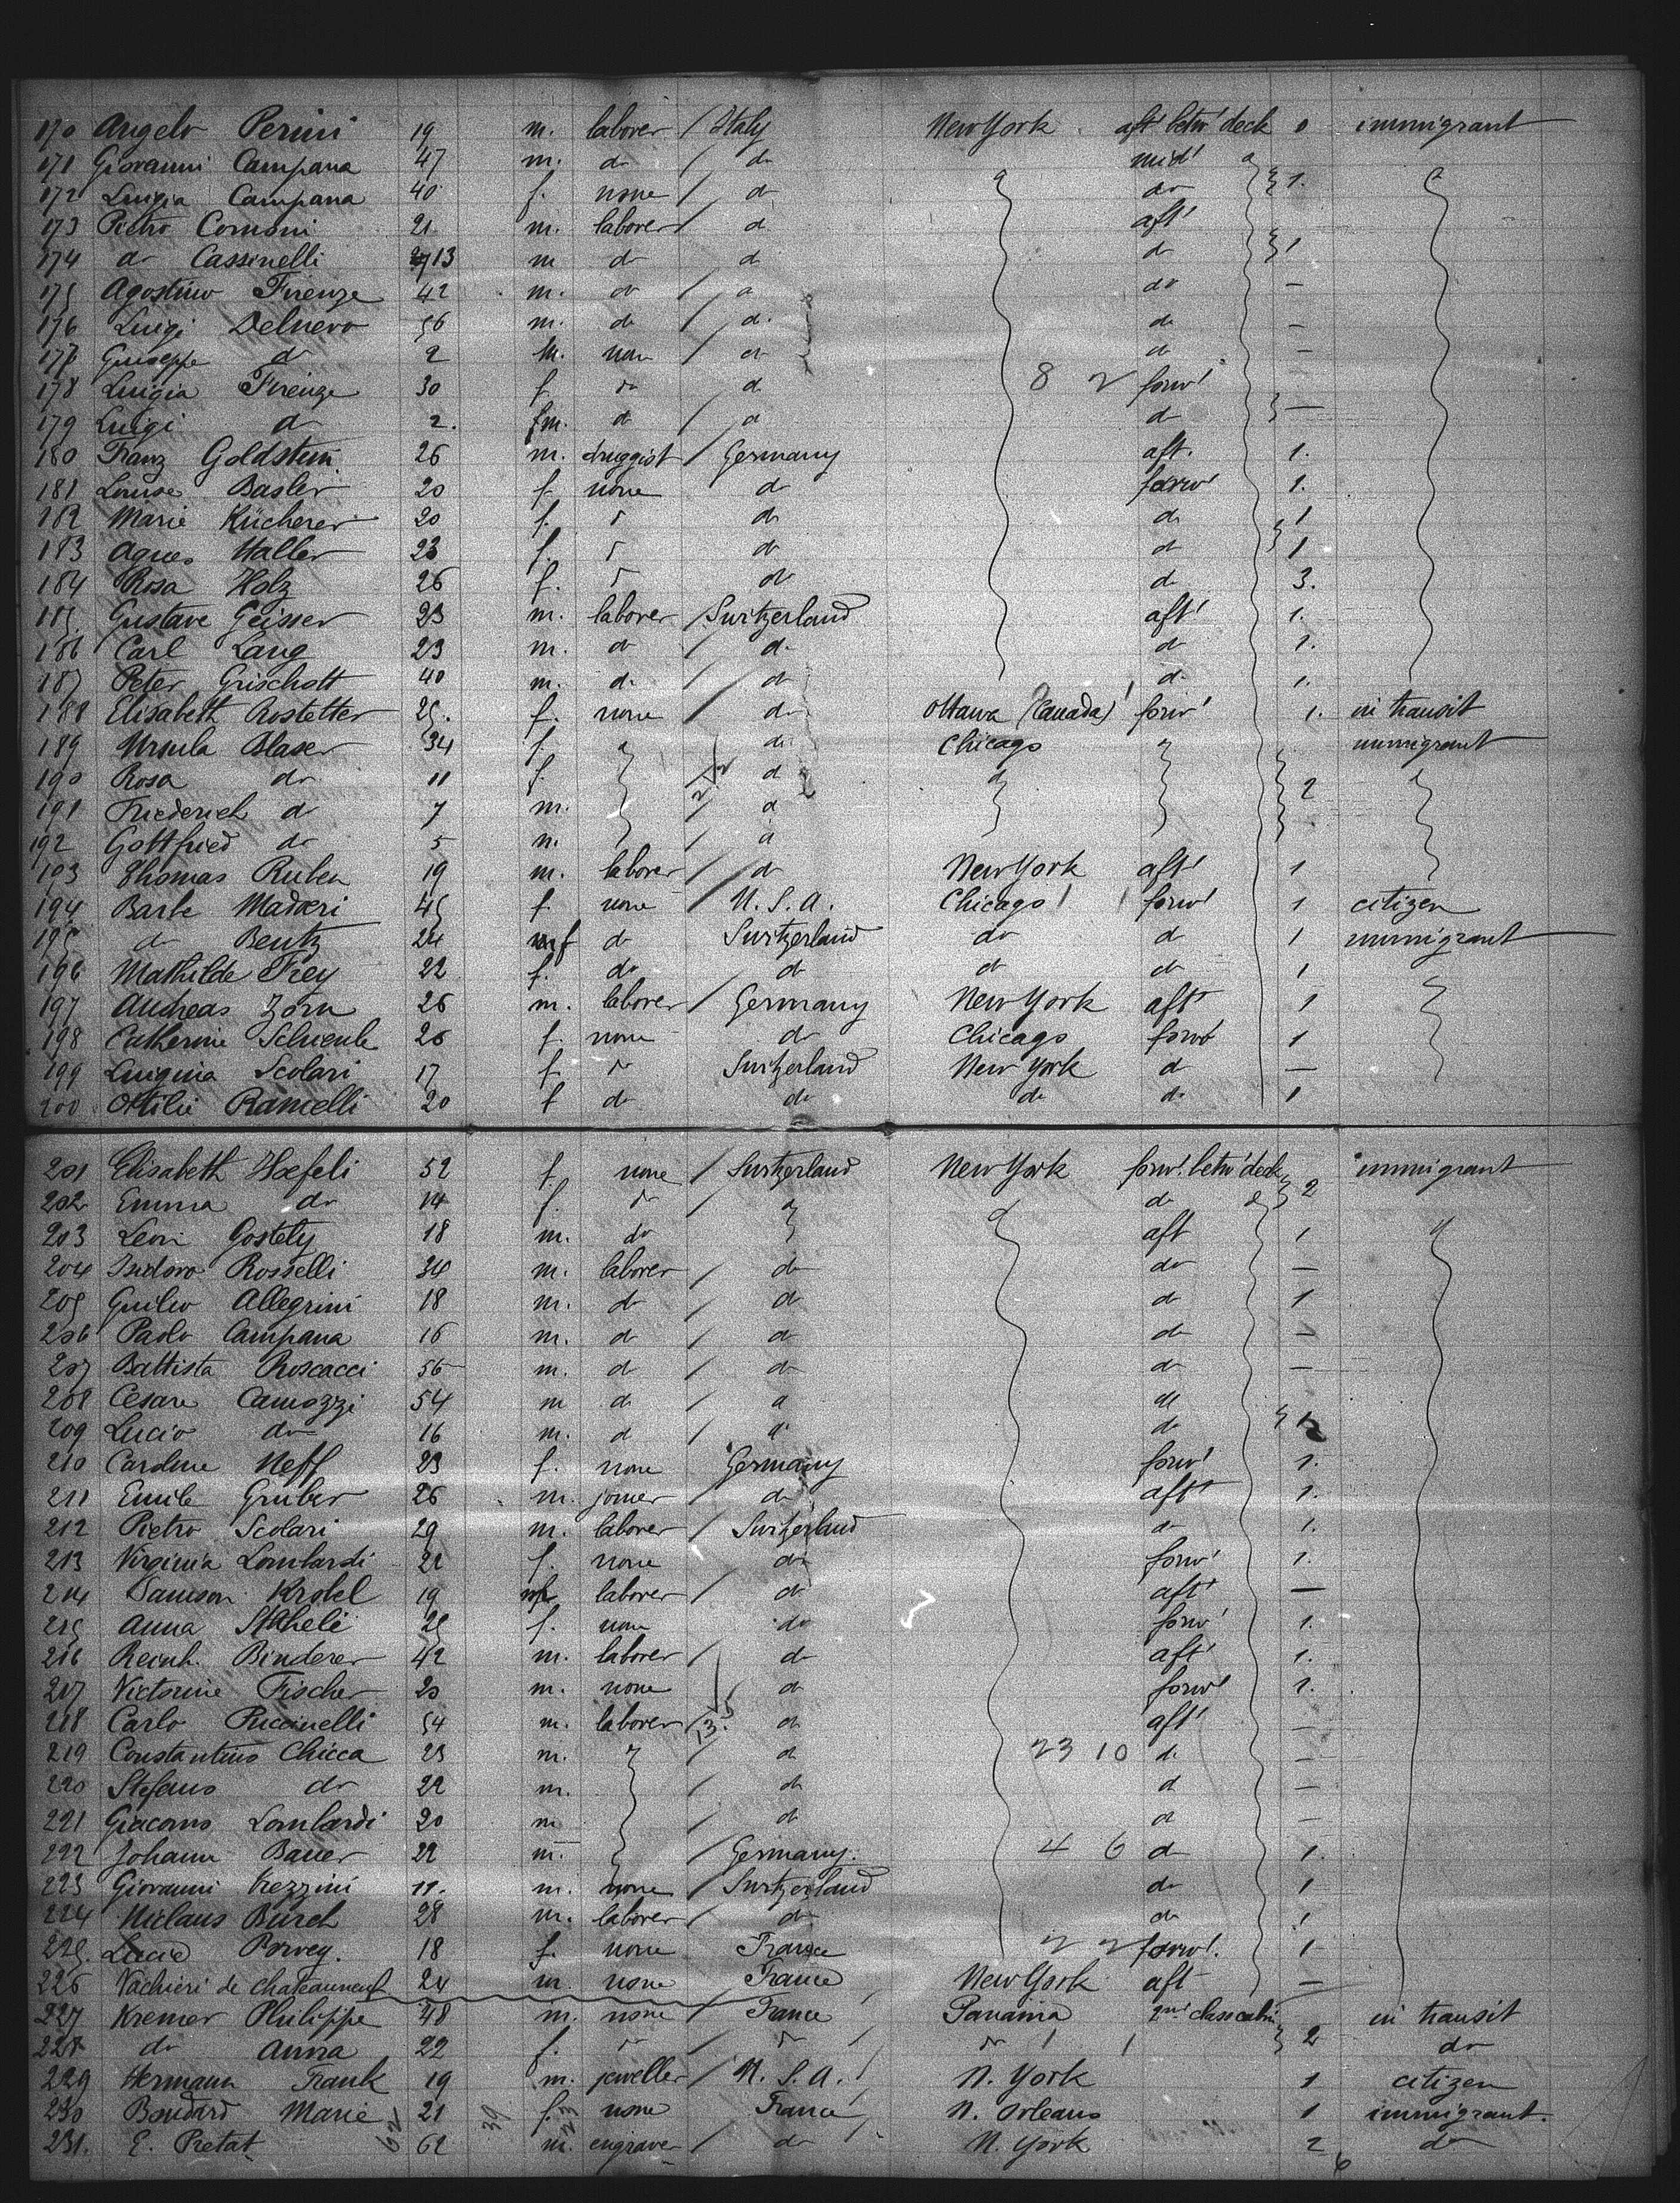 170 Angelo Perini 19 m. laborer / Italy New York aft betw' deck 0 immigrant
171 Giovanni Campana 47 m. do / do mid'
172 Luigia Campana 40 f. none / do do 1.
173 Pietro 21 m. laborer / d aft'
174 do Cassinelli 13 m do d do 1
175 Agostino Firenze 42 m. do / d do —
176 Luigi Delnevo 56 m. do / d. do —
177 Giuseppe do 2 m. non / do do —
178 Luigia Firenze 30 f do d 8 2 forw'
179 Luigi do 2. m. do / d do —
180 Franz Goldstein 26 m. druggist / Germany aft. 1.
181 Louise Basler 20 f. none do forw' 1.
182 Marie Kücherer 20 f. do do 1
183 Agnes Haller 23 f. do do 1
184 Rosa Holz 26 f. do do 3.
185 Gustave Geisser 23 m. laborer / Switzerland aft' 1.
186 Carl Lang 23 m. do / do do 1.
187 Peter Grischott 40 m. do / do do 1.
188 Elisabeth Rostetter 25. f. none / do Ottawa (Canada) forw' 1. in transit
189 Ursula Blaser 34 f. do Chicago immigrant
190 Rosa do 11 f. d 2
191 Friederich do 7 m. / d
192 Gottfried do 5 m. / d
193 Thomas Ruben 19 m. laborer / do New York aft' 1
194 Barbe Madœri 45 f. none / U.S.A. Chicago forw' 1 citizen
195 do Bentz 24 f do Switzerland do d 1 immigrant
196 Mathilde Frey 22 f. do do do do 1
197 Andreas Zorn 26 m. laborer / Germany New York aft 1
198 Catherine 26 f. none do Chicago forw' 1
199 Luigina Scolari 17 f do Switzerland New York d —
200 Ottilie Ramelli 20 f do do do do 1
201 Elisabeth Hæfeli 52 f. none / Switzerland New York forw' betw' deck immigrant
202 Emma do 14 f. do / do 2
203 Leon Gostely 18 m. do aft 1
204 Isidoro Rosselli 34 m. laborer / do do —
205 Guilio Allegrini 18 m. do / do do 1
206 Paolo Campana 16 m. do / do do —
207 Battista Roscacci 56 m. do / do do —
208 Cesare Camozzi 54 m do / d do
209 Lucio do 16 m. d / d do
210 Caroline Neff 23 f. none Germany forw' 1.
211 Emile Gruber 26 m. joiner / do aft 1.
212 Pietro Scolari 29 m. laborer / Switzerland do 1.
213 Virginia Lombardi 22 f. none do forw' 1.
214 Samson Krobel 19 laborer / do aft' —
215 Anna Stäheli 25 f. none do forw' 1.
216 Reinh. Binderer 42 m. laborer / do aft' 1.
217 Victorine Fischer 20 m. none do forw' 1.
218 Carlo Puccinelli 54 m. laborer / 13. do aft' —
219 Constantino Chicca 23 m. / do 23 10 do —
220 Stefano do 22 m. / do d —
221 Giacomo Lombardi 20 m / do do —
222 Johann Bauer 22 m. / Germany. 4 6 do 1.
223 Giovanni 11. m. none / Switzerland do 1
224 Niclaus Burch 28 m. laborer / do do 1
225. Lucie 18 f. none France 2 2 forw'. 1
226 Vachieri de Chateauneuf 24 m none France New York aft —
227 Kremer Philippe 48 m. none / France Panama 2nd class cabin in transit
228 do Anna 22 f. do / do do 2 do
229 Hermann Frank 19 m. jeweller / U.S.A. N. York 1 citizen
230 Boudard Marie 21 f. none France N. Orleans 1 immigrant.
231. E. Pretat 62 m. engraver / do N. York 2 do
6